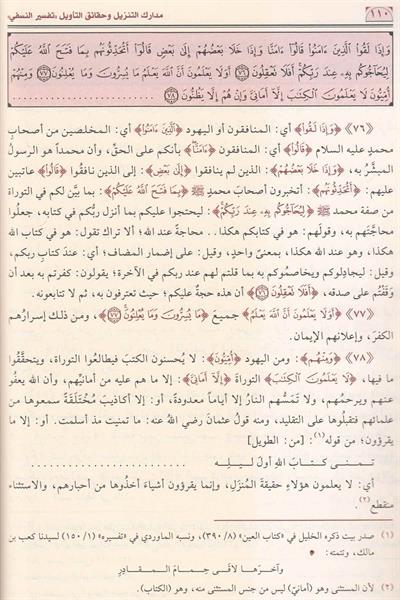 ١١٠ مدارك التنزيل وحقائق التأويل «تفسير النسفي»
وَإِذَا لَقُوا الَّذِينَ ءَامَنُوا قَالُوٓا ءَامَنَّا وَإِذَا خَلَا بَعْضُهُمْ إِلَىٰ بَعْضٍ قَالُوٓا أَتُحَدِّثُونَهُم بِمَا فَتَحَ اللَّهُ عَلَيْكُمْ
لِيُحَآجُّوكُم بِهِۦ عِندَ رَبِّكُمْ أَفَلَا تَعْقِلُونَ ﴿٧٦﴾ أَوَلَا يَعْلَمُونَ أَنَّ اللَّهَ يَعْلَمُ مَا يُسِرُّونَ وَمَا يُعْلِنُونَ ﴿٧٧﴾ وَمِنْهُمْ
أُمِّيُّونَ لَا يَعْلَمُونَ الْكِتَٰبَ إِلَّآ أَمَانِىَّ وَإِنْ هُمْ إِلَّا يَظُنُّونَ ﴿٧٨﴾
﴿٧٦﴾ ﴿وَإِذَا لَقُوا﴾ أي: المنافقون أو اليهود ﴿الَّذِينَ ءَامَنُوا﴾ أي: المخلصين من أصحاب
محمد عليه السلام ﴿قَالُوٓا﴾ أي: المنافقون ﴿ءَامَنَّا﴾ بأنكم على الحقِّ، وأن محمداً هو الرسولُ
المبشَّر به، ﴿وَإِذَا خَلَا بَعْضُهُمْ﴾: الذين لم ينافقوا ﴿إِلَىٰ بَعْضٍ﴾: إلى الذين نافقُوا ﴿قَالُوٓا﴾ عاتبين
عليهم: ﴿أَتُحَدِّثُونَهُم﴾: أتخبرون أصحابَ محمدٍ ﷺ ﴿بِمَا فَتَحَ اللَّهُ عَلَيْكُمْ﴾: بما بيَّن لكم في التوراة
من صفة محمد ﷺ ﴿لِيُحَآجُّوكُم بِهِۦ عِندَ رَبِّكُمْ﴾: ليحتجوا عليكم بما أنزل ربُّكم في كتابه، جعلُوا
محاجَّتَهم به، وقولَهم: هو في كتابكم هكذا.. محاجةً عند الله؛ ألا تراك تقول: هو في كتاب الله
هكذا، وهو عند الله هكذا، بمعنًى واحدٍ، وقيل: على إضمار المضاف؛ أي: عند كتابِ ربكم،
وقيل: ليجادلوكم ويخاصمُوكم به بما قلتم لهم عند ربكم في الآخرة؛ يقولون: كفرتم به بعد أن
وَقَفْتُم على صدقه، ﴿أَفَلَا تَعْقِلُونَ ﴿٧٦﴾﴾ أن هذه حجةٌ عليكم؛ حيث تعترفون به، ثم لا تتابعونه.
﴿٧٧﴾ ﴿أَوَلَا يَعْلَمُونَ أَنَّ اللَّهَ يَعْلَمُ﴾ جميعَ ﴿مَا يُسِرُّونَ وَمَا يُعْلِنُونَ ﴿٧٧﴾﴾، ومن ذلك إسرارُهم
الكفرَ، وإعلانهم الإيمان.
﴿٧٨﴾ ﴿وَمِنْهُمْ﴾: ومن اليهود ﴿أُمِّيُّونَ﴾: لا يُحسنون الكتبَ فيطالعوا التوراةَ، ويتحقَّقوا
ما فيها، ﴿لَا يَعْلَمُونَ الْكِتَٰبَ﴾ التوراةَ ﴿إِلَّآ أَمَانِىَّ﴾: إلا ما هم عليه من أمانيِّهم، وأن الله يعفُو
عنهم ويرحمُهم، ولا تَمَسُّهم النارُ إلا أياماً معدودةً، أو: إلا أكاذيبَ مُخْتَلَقَةً سمعوها من
علمائهم فتقبلُوها على التقليد، ومنه قولُ عثمانَ رضي اللهُ عنه: ما تمنيت مذ أسلمت. أو: إلا ما
يقرؤون؛ من قوله(١): [من: الطويل]
تمنى كتابَ اللهِ أولَ ليلِه
أي: لا يعلمون هؤلاءِ حقيقةَ المُنزَل، وإنما يقرؤون أشياءَ أخذُوها من أحبارهم، والاستثناء
منقطع(٢).
(١) صدر بيت ذكره الخليل في «كتاب العين» (٨/٣٩٠)، ونسبه الماوردي في «تفسيره» (١/١٥٠) لسيدنا كعب بن
مالك، وتتمته:
وآخرَها لاقى حِمامَ المقادِرِ
(٢) لأن المستثنى وهو (أمانيّ) ليس من جنس المستثنى منه، وهو (الكتاب).